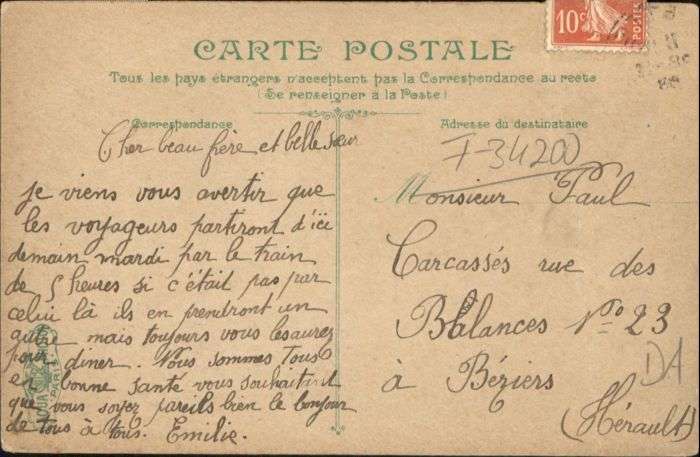 CARTE POSTALE
Tous les pays étrangers n'acceptent pas la Correspondance au recto
(Se renseigner à la Poste)
Correspondance
Cher beau frère et belle sœur
je viens vous avertir que
les voyageurs partiront d'ici
demain mardi par le train
de 5 heures si c'était pas par
celui là ils en prendront un
autre mais toujours vous les aurez
pour diner. Vous sommes tous
en bonne santé vous souhaitant
que vous soyez pareils bien le bonjour
de tous à tous. Emilie.
10c
POSTES
Adresse du destinataire
F-34200
Monsieur Paul
Carcassés rue des
Balances No 23
à Béziers
(Hérault)
DA
PARIS